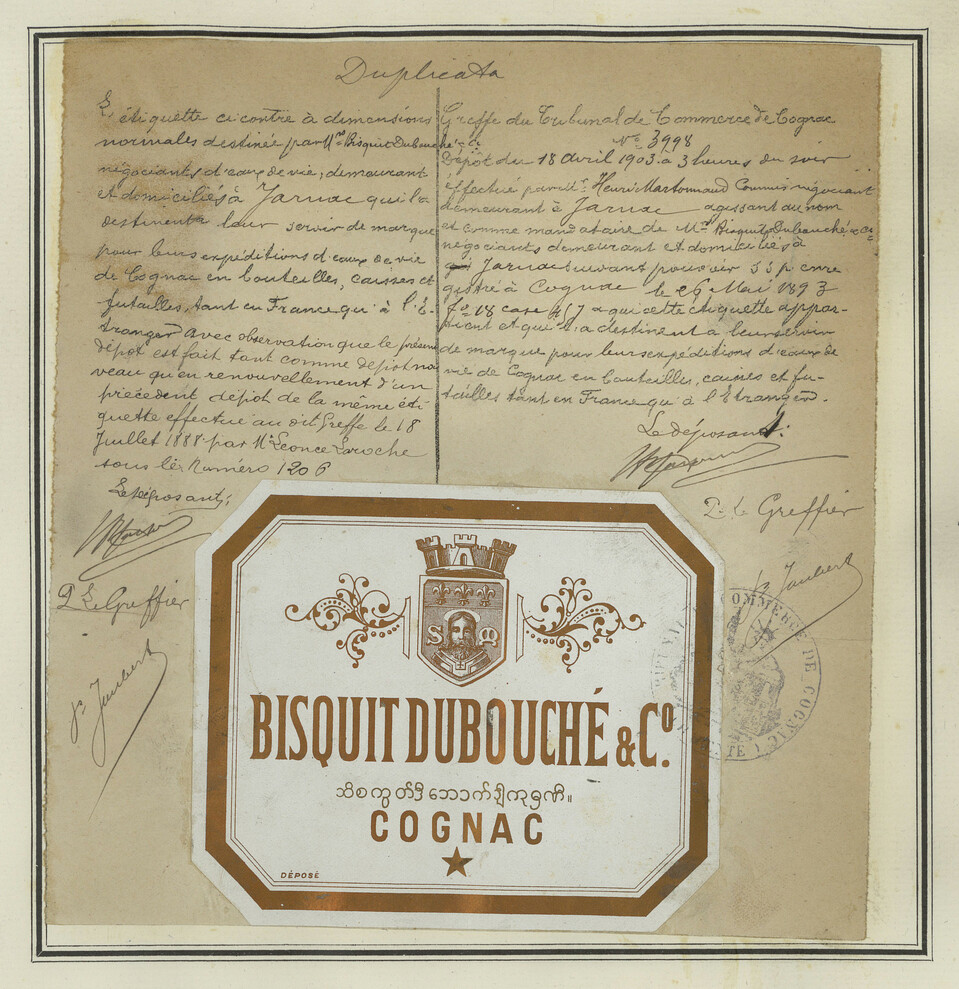 Duplicata
L'étiquette ci contre à dimensions
normales destinée par Mrs Bisquit Dubouché & Co
négociants d'eaux de vie, demeurant
et domiciliés à Jarnac qui la
destinent à leur servir de marque
pour leurs expéditions d'eaux de vie
de Cognac en bouteilles, caisses et
futailles, tant en France qu'à l'E-
tranger. Avec observation que le présent
dépôt est fait tant comme dépôt nou
veau qu'en renouvellement d'un
précédent dépôt de la même éti
quette effectué au dit Greffe le 18
Juillet 1888 par Mr Léonce Laroche
sous le Numéro 1206
Le Déposant;
P. Le Greffier
Jaubert
Greffe du Tribunal de Commerce de Cognac
No 3998
Dépôt du 18 Avril 1903 à 3 heures du soir
effectué par dit Henri Martonnaud Commis négociant
demeurant à Jarnac agissant au nom
et comme mandataire de Mrs Bisquit Dubouché & Co
négociants demeurant et domiciliés à
Jarnac suivant pouvoir s s p enre
gistré à Cognac le 26 Mai 1893
fo 18 case 457 a qui cette étiquette appar-
tient et qui la destinent à leur servir
de marque pour leurs expéditions d'eaux de
vie de Cognac en bouteilles, caisses et fu-
tailles tant en France qu'à l'Etranger.
Le déposant:
Pr le Greffier
Jaubert
S M
BISQUIT DUBOUCHÉ & Co.
COGNAC
DÉPOSÉ
COMMERCE DE COGNAC